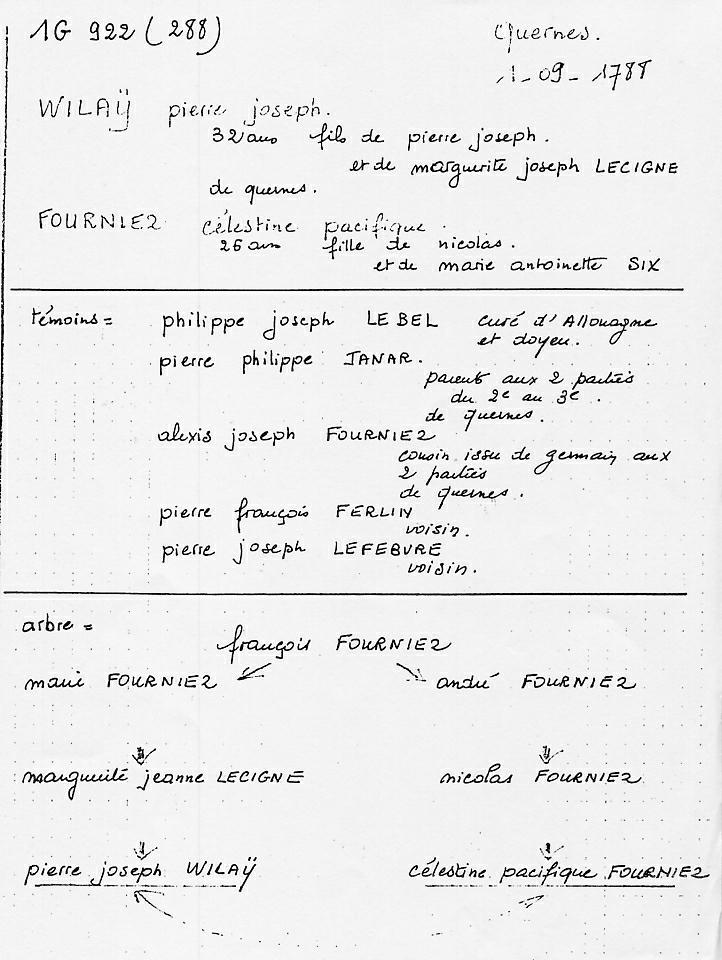 1G 922 (288) Quernes.
1-09-1788
WILAŸ pierre joseph.
32 ans fils de pierre joseph.
et de marguerite joseph LECIGNE
de quernes.
FOURNIEZ célestine pacifique.
26 ans fille de nicolas.
et de marie antoinette SIX
témoins = philippe joseph LEBEL curé d'Allouagne
et doyen.
pierre philippe JANAR.
parent aux 2 parties
du 2e au 3e.
de quernes.
alexis joseph FOURNIEZ
cousin issu de germain aux
2 parties
de quernes.
pierre françois FERLIN
voisin.
pierre joseph LEFEBURE
voisin.
arbre =
françois FOURNIEZ
marie FOURNIEZ andré FOURNIEZ
marguerite jeanne LECIGNE nicolas FOURNIEZ
pierre joseph WILAŸ célestine pacifique FOURNIEZ